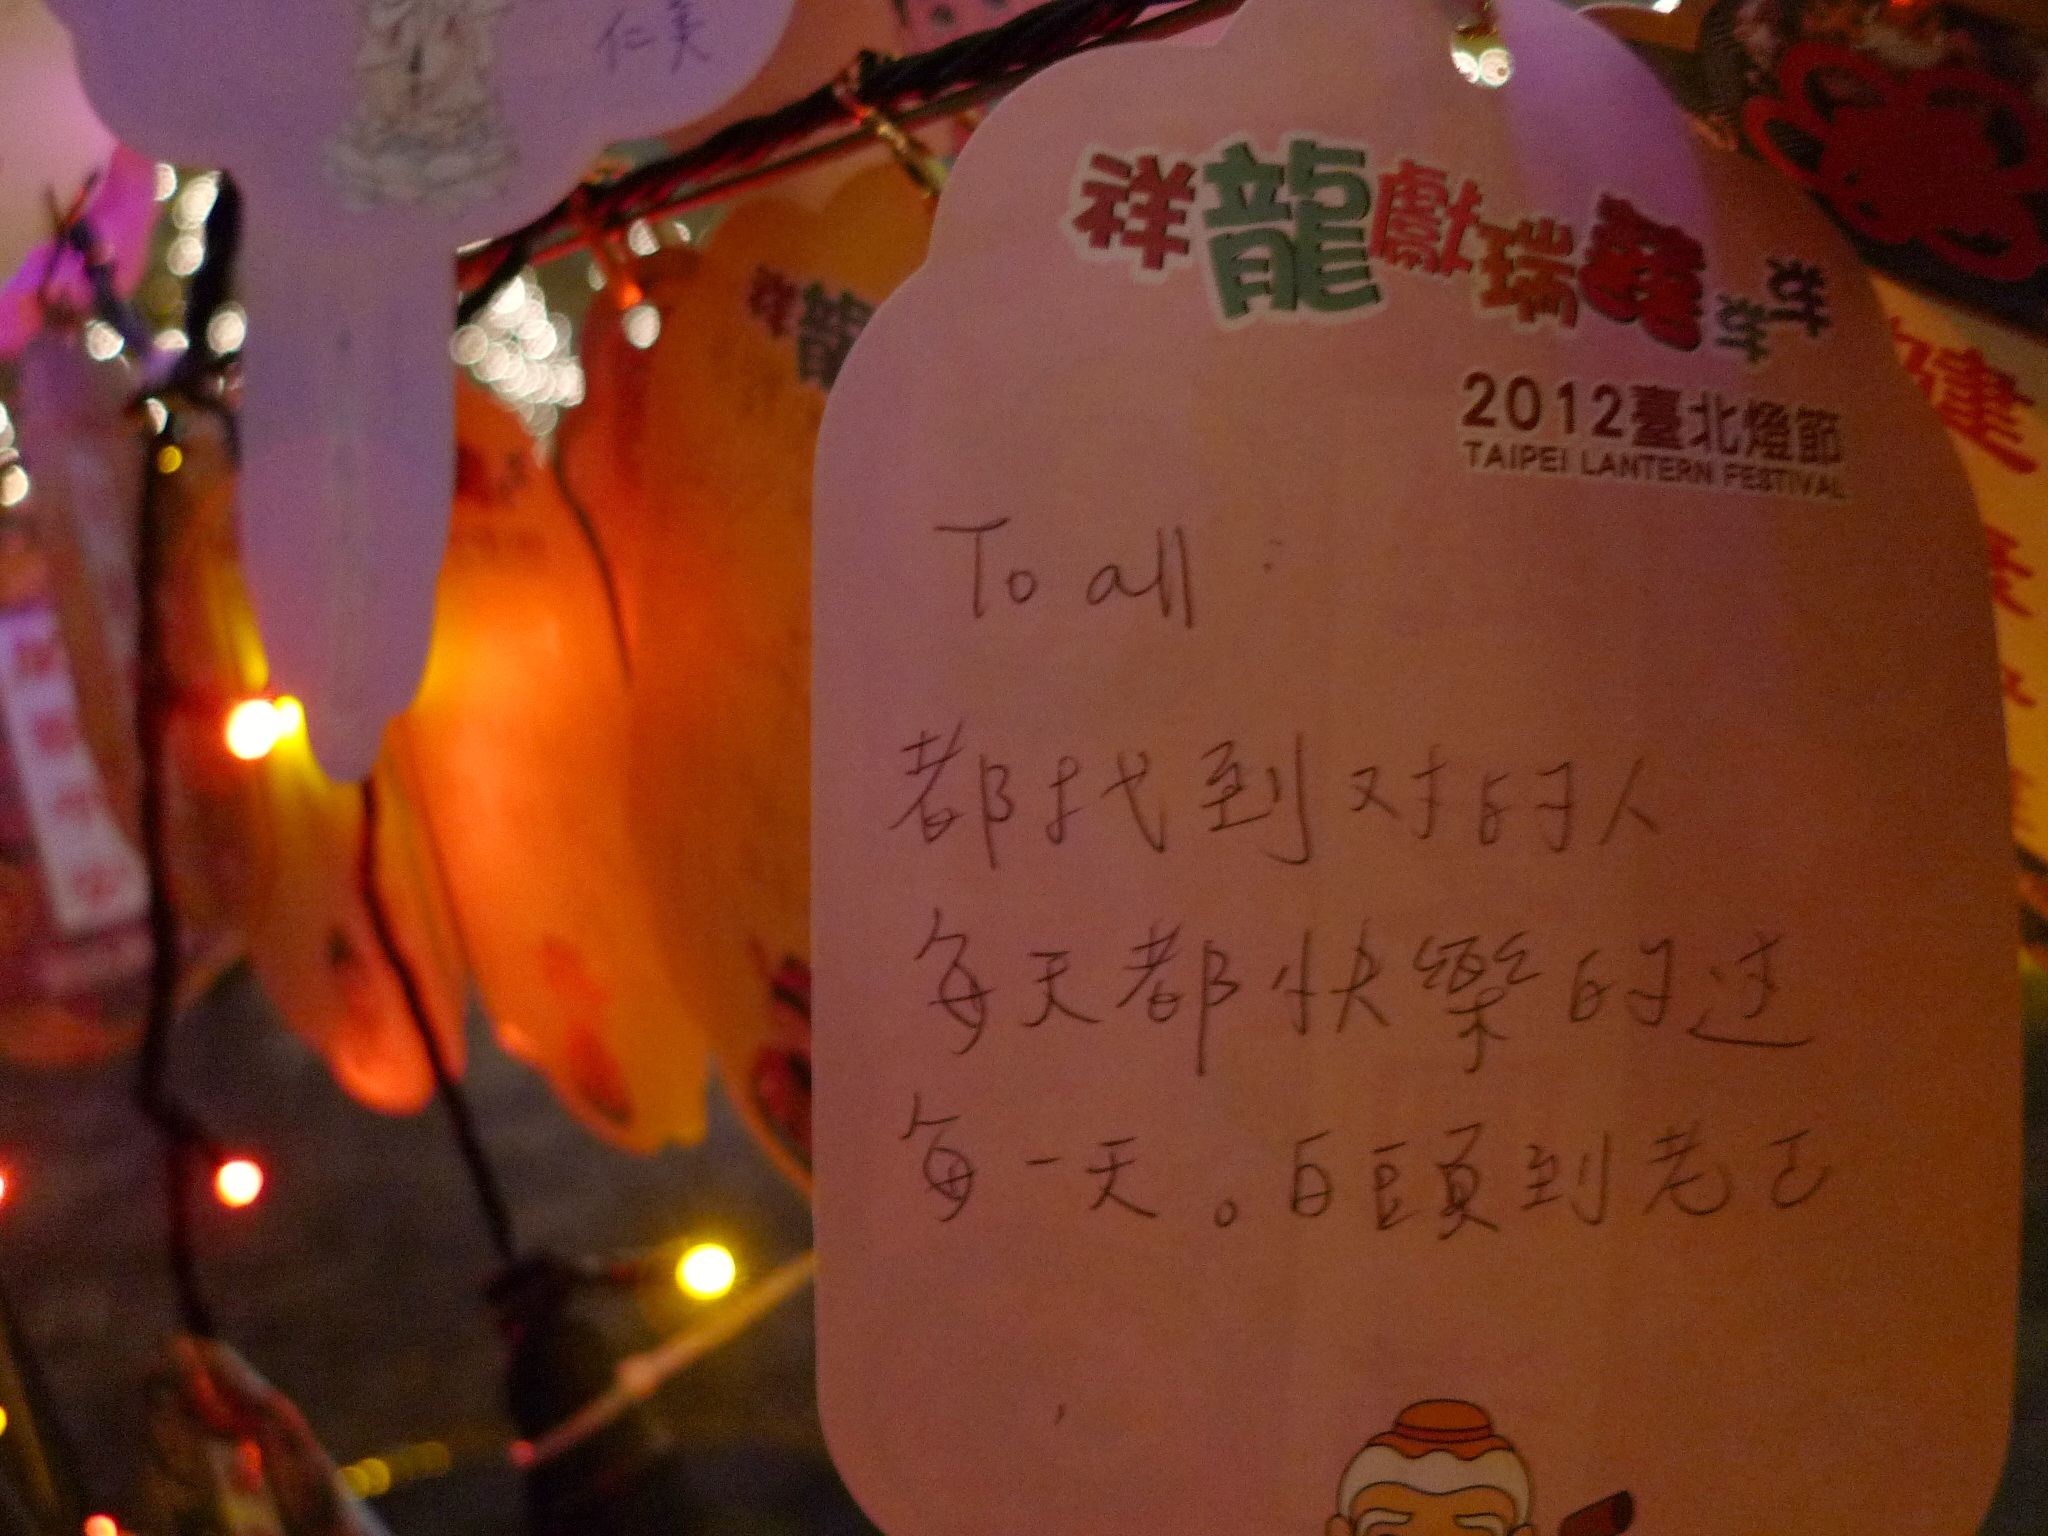 仁美
祥龍獻瑞雙城城
2012臺北燈節
TAIPEI LANTERN FESTIVAL
To all :
都找到对的人
每天都快樂的过
每一天。白頭到老
祥龍
健